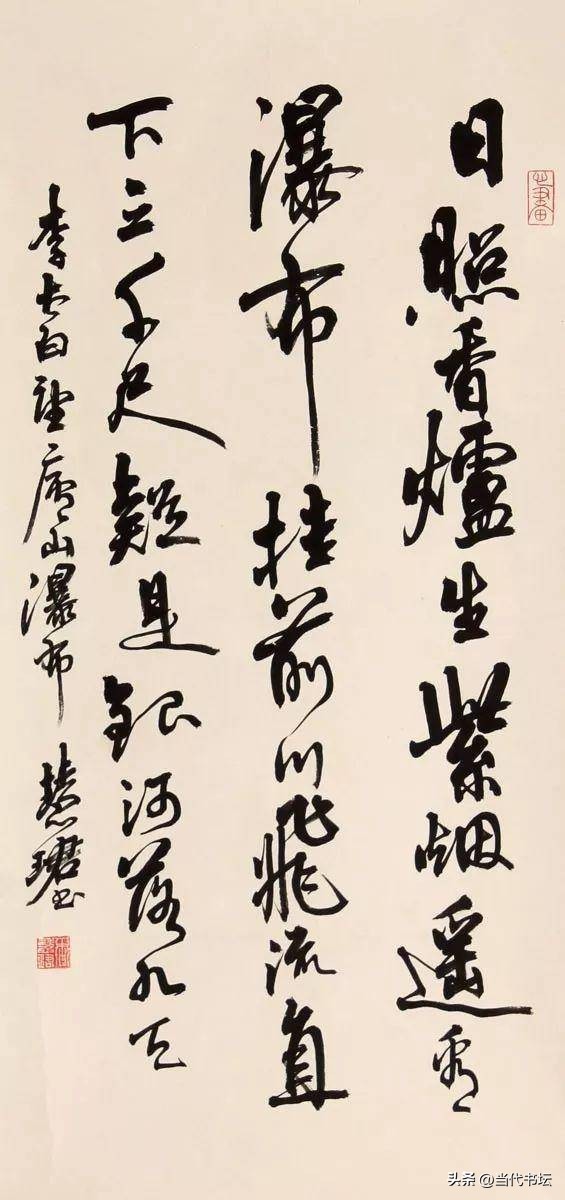 日照香爐生紫烟遥看
瀑布挂前川飛流直
下三千尺疑是銀河落九天
李太白望廬山瀑布 慧珺書
头条 @当代书坛